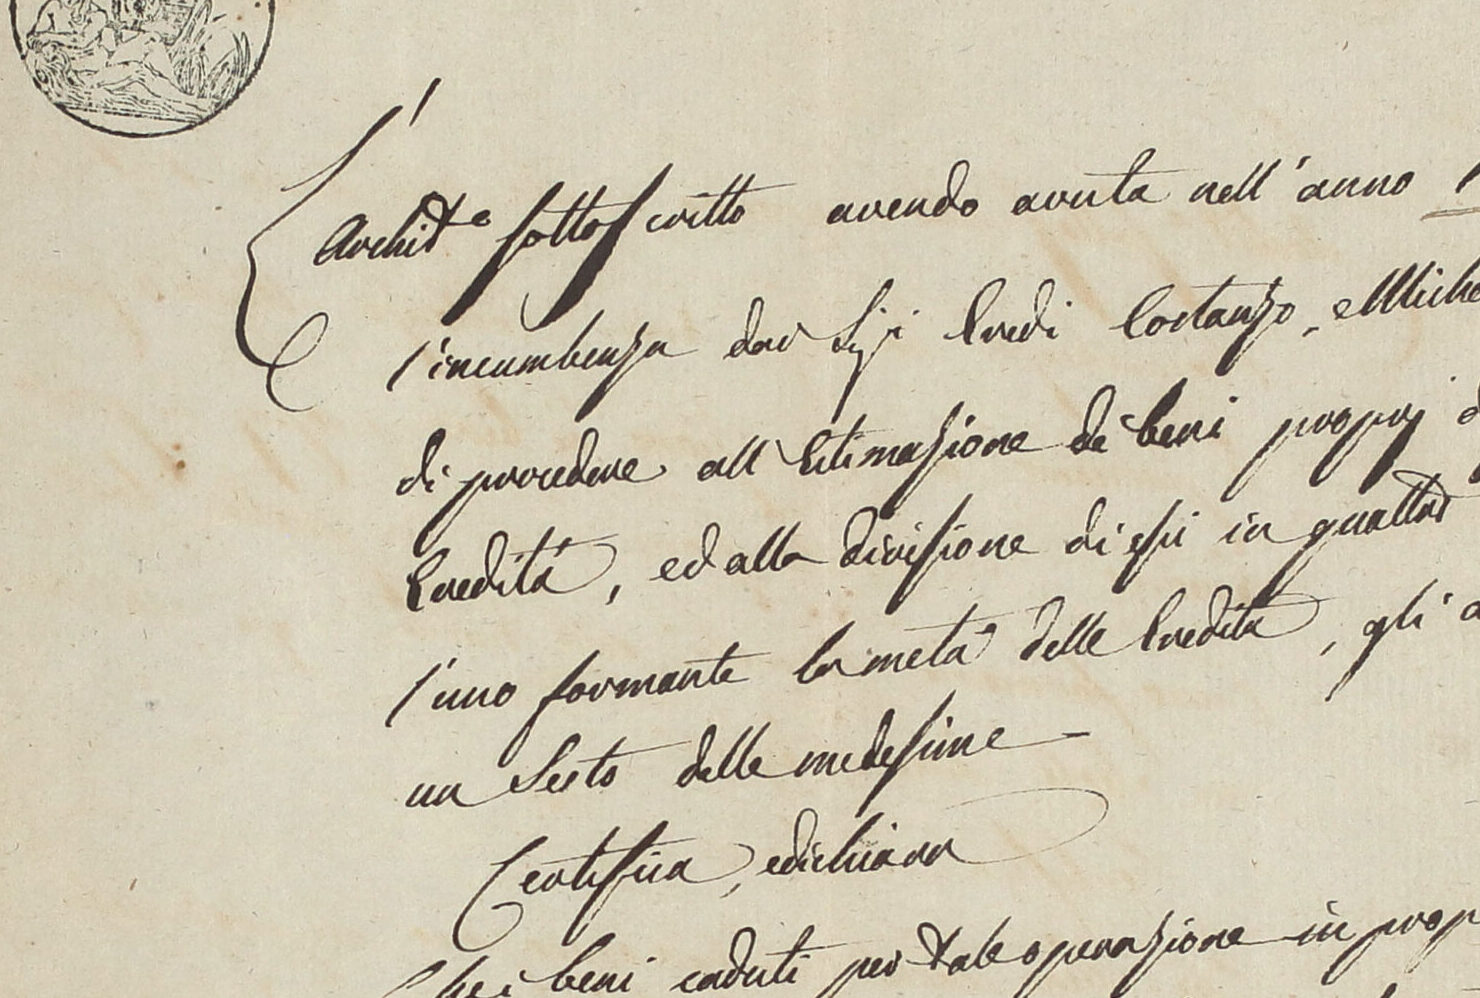 L'Archit.o sottoscritto avendo avuta nell'anno
l'incumbenza da Sig.i Eredi Costanzo, e Miche
di procedere all'Estimazione de' beni proprj
Eredità, ed alla divisione di essi in quattro
l'uno formante la metà delle Eredità, gli
un Sesto delle medesime
Certifica, e dichiara
Che i beni caduti per tale operazione in prop